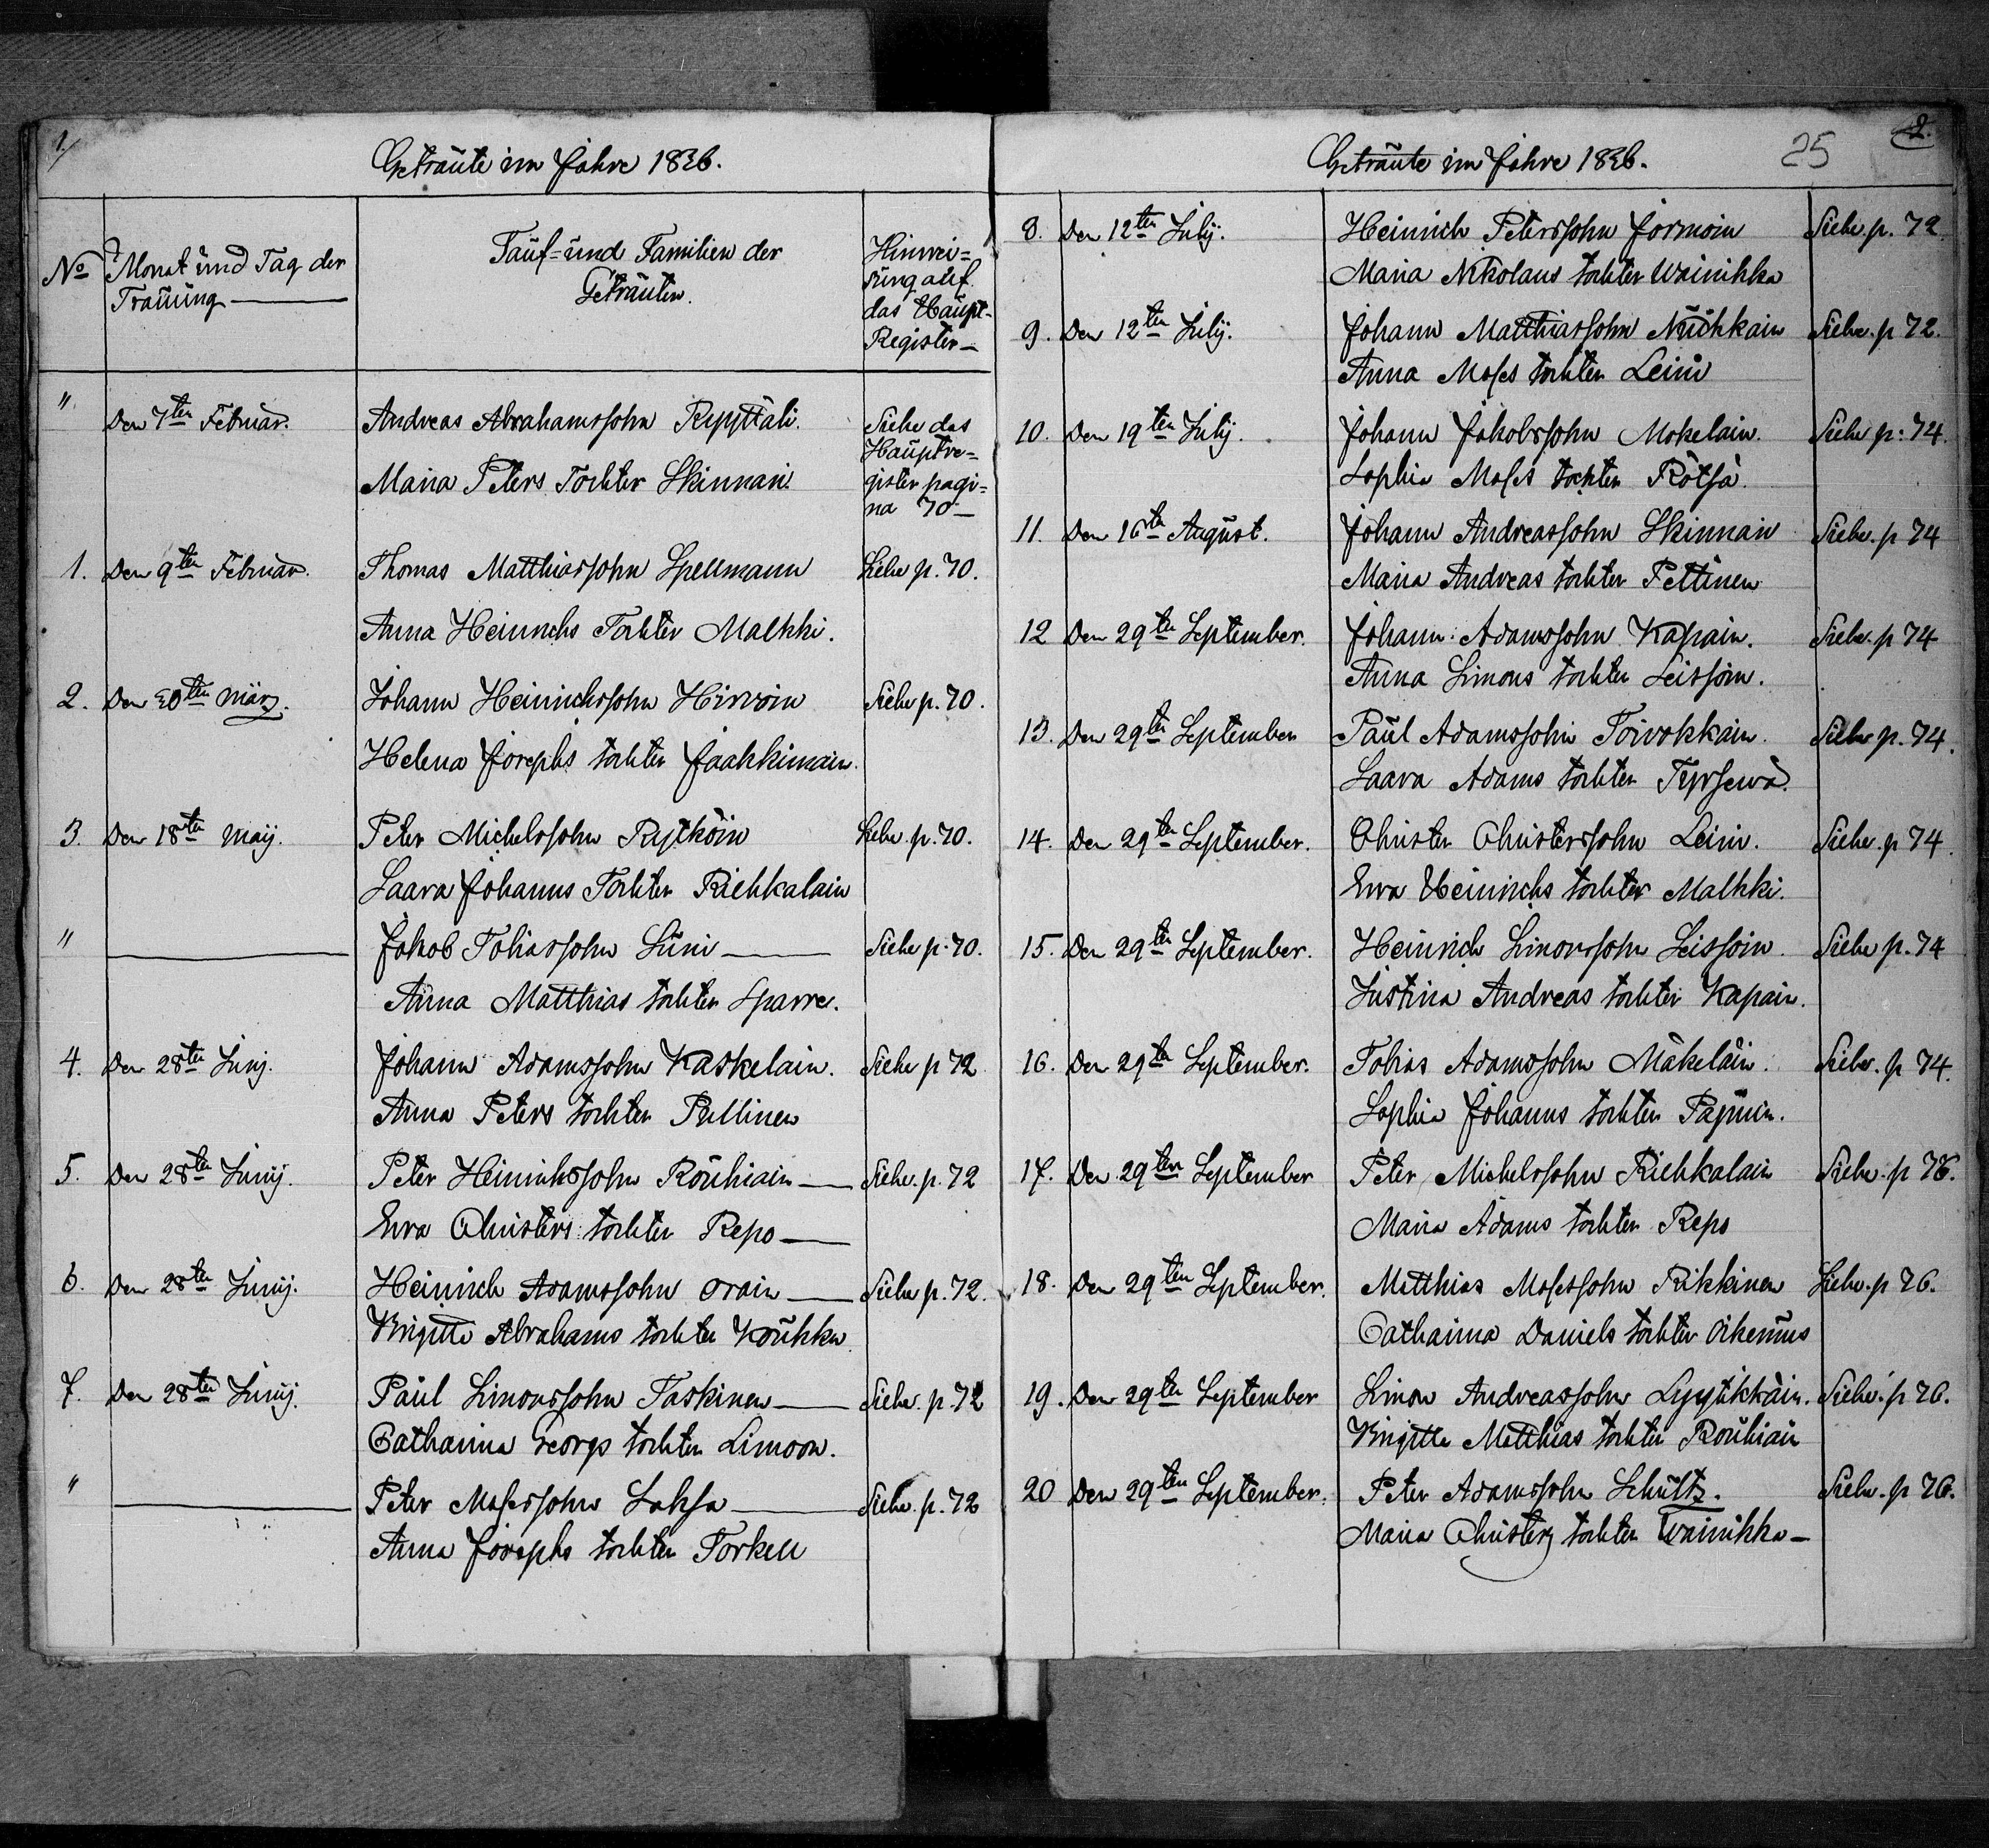 1.
Getraüte im Jahre 1836.
No
Monat und Tag der
Traüung
Taüf- und Familien der
Getraüten.
Hinwei-
süng aüf
das Haüpt-
Register
" Den 7ten Februar. Andreas Abrahamssohn Ryyttäli. Siehe das
Haüptre-
Maria Peters Tochter Skinnari. gister pagi-
na 70
1. Den 9ten Februar. Thomas Matthiassohn Spellmann Siehe p. 70.
Anna Heinrichs Tochter Malkki.
2. Den 30ten März. Johann Heinrichssohn Hirvoin Siehe p. 70.
Helena Josephs tochter Jaakkimain.
3. Den 18ten Maij. Peter Michelssohn Rytköin Siehe p. 70.
Saara Johanns Tochter Riehkalain
" Jakob Tobiassohn Süni Siehe p. 70.
Anna Matthias tochter Sparre.
4. Den 28ten Junj. Johann Adamssohn Kaskelain. Siehe p 72
Anna Peters tochter Pullinen
5. Den 28ten Junij. Peter Heinrichssohn Roühiain Siehe p. 72
Ewa Christers tochter Repo
6. Den 28ten Junij. Heinrich Adamssohn Orain Siehe p. 72.
Brigitta Abrahams tochter Koükka
7. Den 28ten Junij. Paül Simonssohn Taskinen Siehe p. 72
Catharina Georgs tochter Simoon.
" Peter Mosessohn Saksa Siehe p. 72
Anna Josephs tochter Torkell
2.
25
Getraüte im Jahre 1836.
8. Den 12ten Julij. Heinrich Peterssohn Jormoin Siehe p. 72
Maria Nikolaus tochter Wainikka
9. Den 12ten Julij. Johann Matthiassohn Nuükkain Siehe p 72.
Anna Moses tochter Leini
10. Den 19ten Julij. Johann Jakobssohn Mokelain. Siehe p: 74.
Sophia Moses tochter Rötsä.
11. Den 16ten August. Johann Andreassohn Skinnari Siehe p 74
Maria Andreas tochter Pettinen
12 Den 29ten September. Johann Adamssohn Kapain. Siehe p 74
Anna Simons tochter Seissoin.
13. Den 29ten September Paül Adamssohn Toivokkain. Siehe p. 74.
Saara Adams tochter Tyrsewä.
14. Den 29ten September. Christer Christerssohn Leini. Siehe p 74.
Ewa Heinrichs tochter Malkki.
15. Den 29ten September. Heinrich Simonssohn Seissoin. Siehe p. 74
Justina Andreas tochter Kapain.
16. Den 29ten September. Tobias Adamssohn Mäkeläin. Siehe p 74.
Sophia Johanns tochter Pajuin.
17. Den 29ten September Peter Michelssohn Riehkalain Siehe p 76.
Maria Adams tochter Repo
18. Den 29ten September. Matthias Mosessohn Rikkinen Siehe p 76.
Catharina Daniels tochter Oikemus
19. Den 29ten September Simon Andreassohn Lyytikkäin. Siehe p 76.
Brigitta Matthias tochter Roühiain
20 Den 29ten September. Peter Adamssohn Schültz. Siehe p 76.
Maria Christers tochter Wainikka